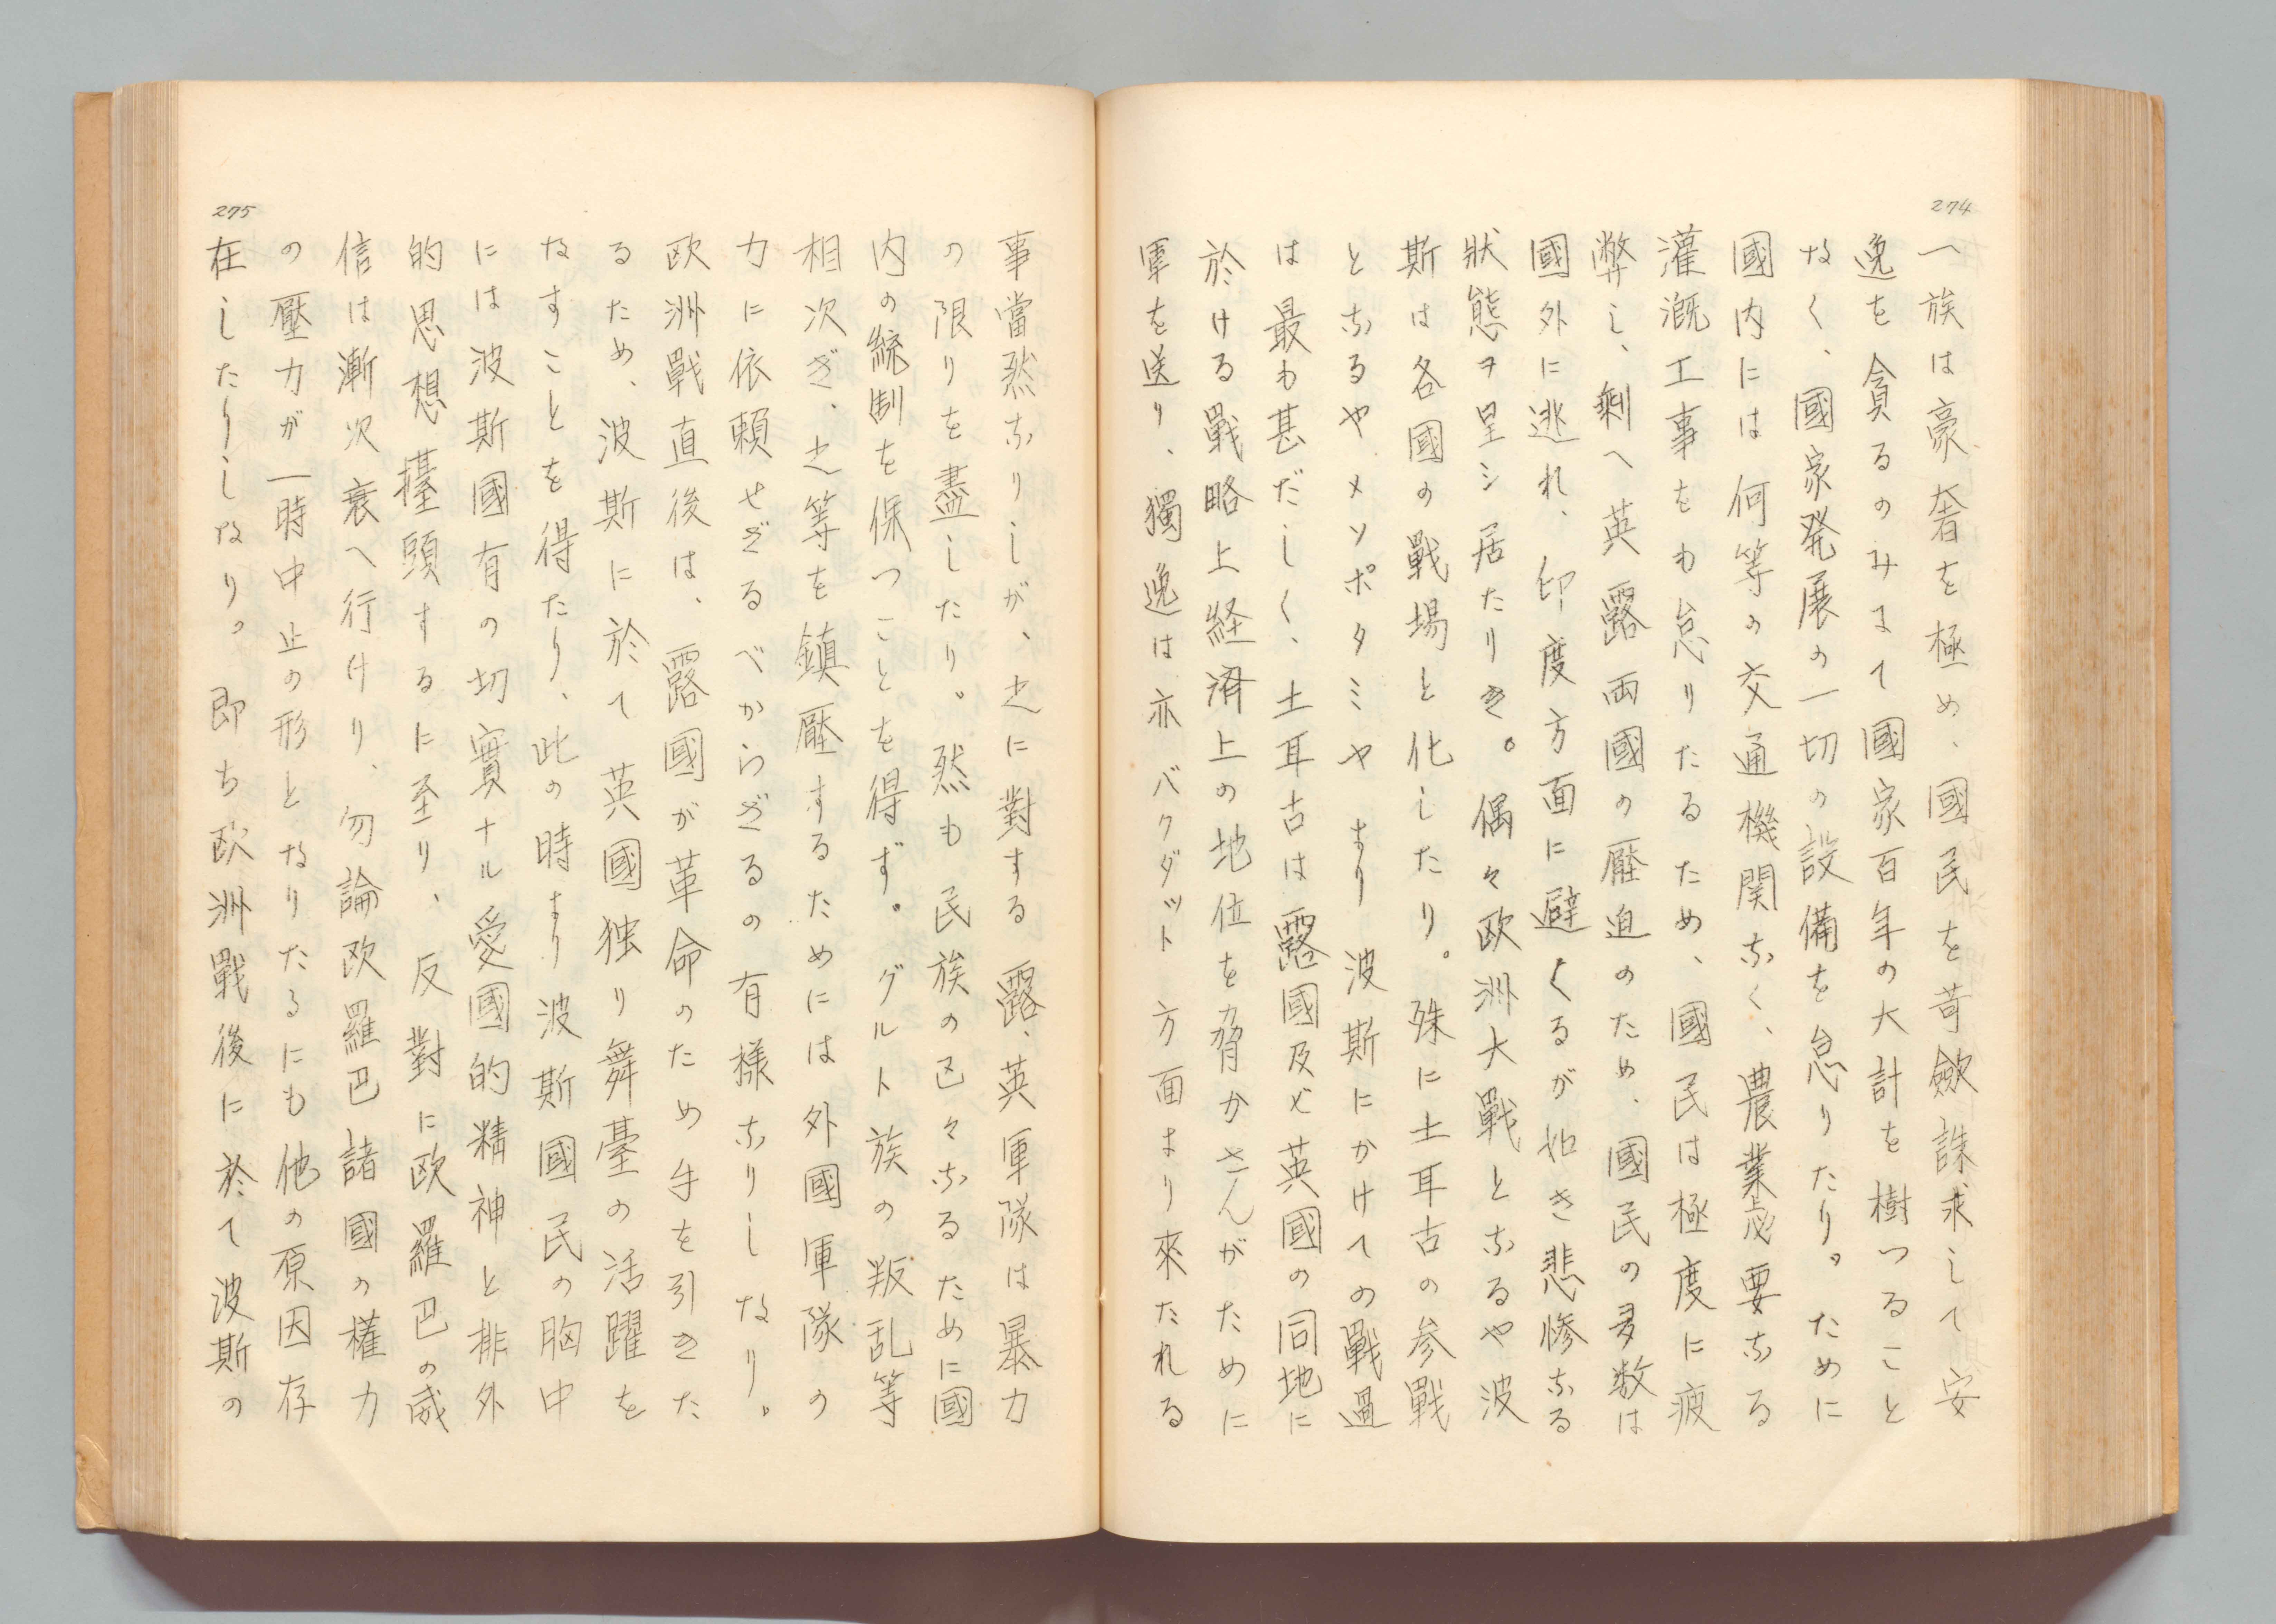 274
一族は豪奢を極め、國民を苛斂誅求して安
逸を貪るのみにて國家百年の大計を樹つること
なく、國家発展の一切の設備を怠りたり。ために
國内には何等の交通機関なく、農業必要なる
灌漑工事をも怠りたるため、國民は極度に疲
弊し、剰へ英露両國の壓迫のため、國民の多数は
國外に逃れ、印度方面に避くるが如き悲惨なる
狀態ヲ呈シ居たりき。偶々欧洲大戰となるや波
斯は各國の戰場と化したり。殊に土耳古の参戰
となるやメソポタミヤより波斯にかけての戰過
は最も甚だしく、土耳古は露國及び英國の同地に
於ける戰略上経済上の地位を脅かさんがために
軍を送り、獨逸は亦バクダット方面より來たれる
275
事當然なりしが、之に對する露、英軍隊は暴力
の限りを盡したり。然も民族の区々なるために國
内の統制を保つことを得ず。グルト族の叛乱等
相次ぎ、之等を鎮壓するためには外國軍隊の
力に依頼せざるべからざるの有様なりしなり。
欧洲戰直後は、露國が革命のため手を引きた
るため、波斯に於て英國独り舞臺の活躍を
なすことを得たり、此の時より波斯國民の胸中
には波斯國有の切實ナル愛國的精神と排外
的思想擡頭するに至り、反對に欧羅巴の威
信は漸次衰へ行けり、勿論欧羅巴諸國の權力
の壓力が一時中止の形となりたるにも他の原因存
在したりしなり。即ち欧洲戰後に於て波斯の